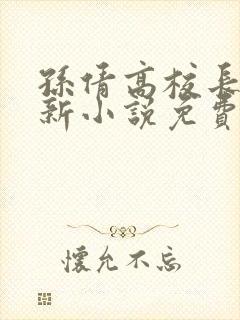 孫倩高校長
新小說免費
懷允不忘